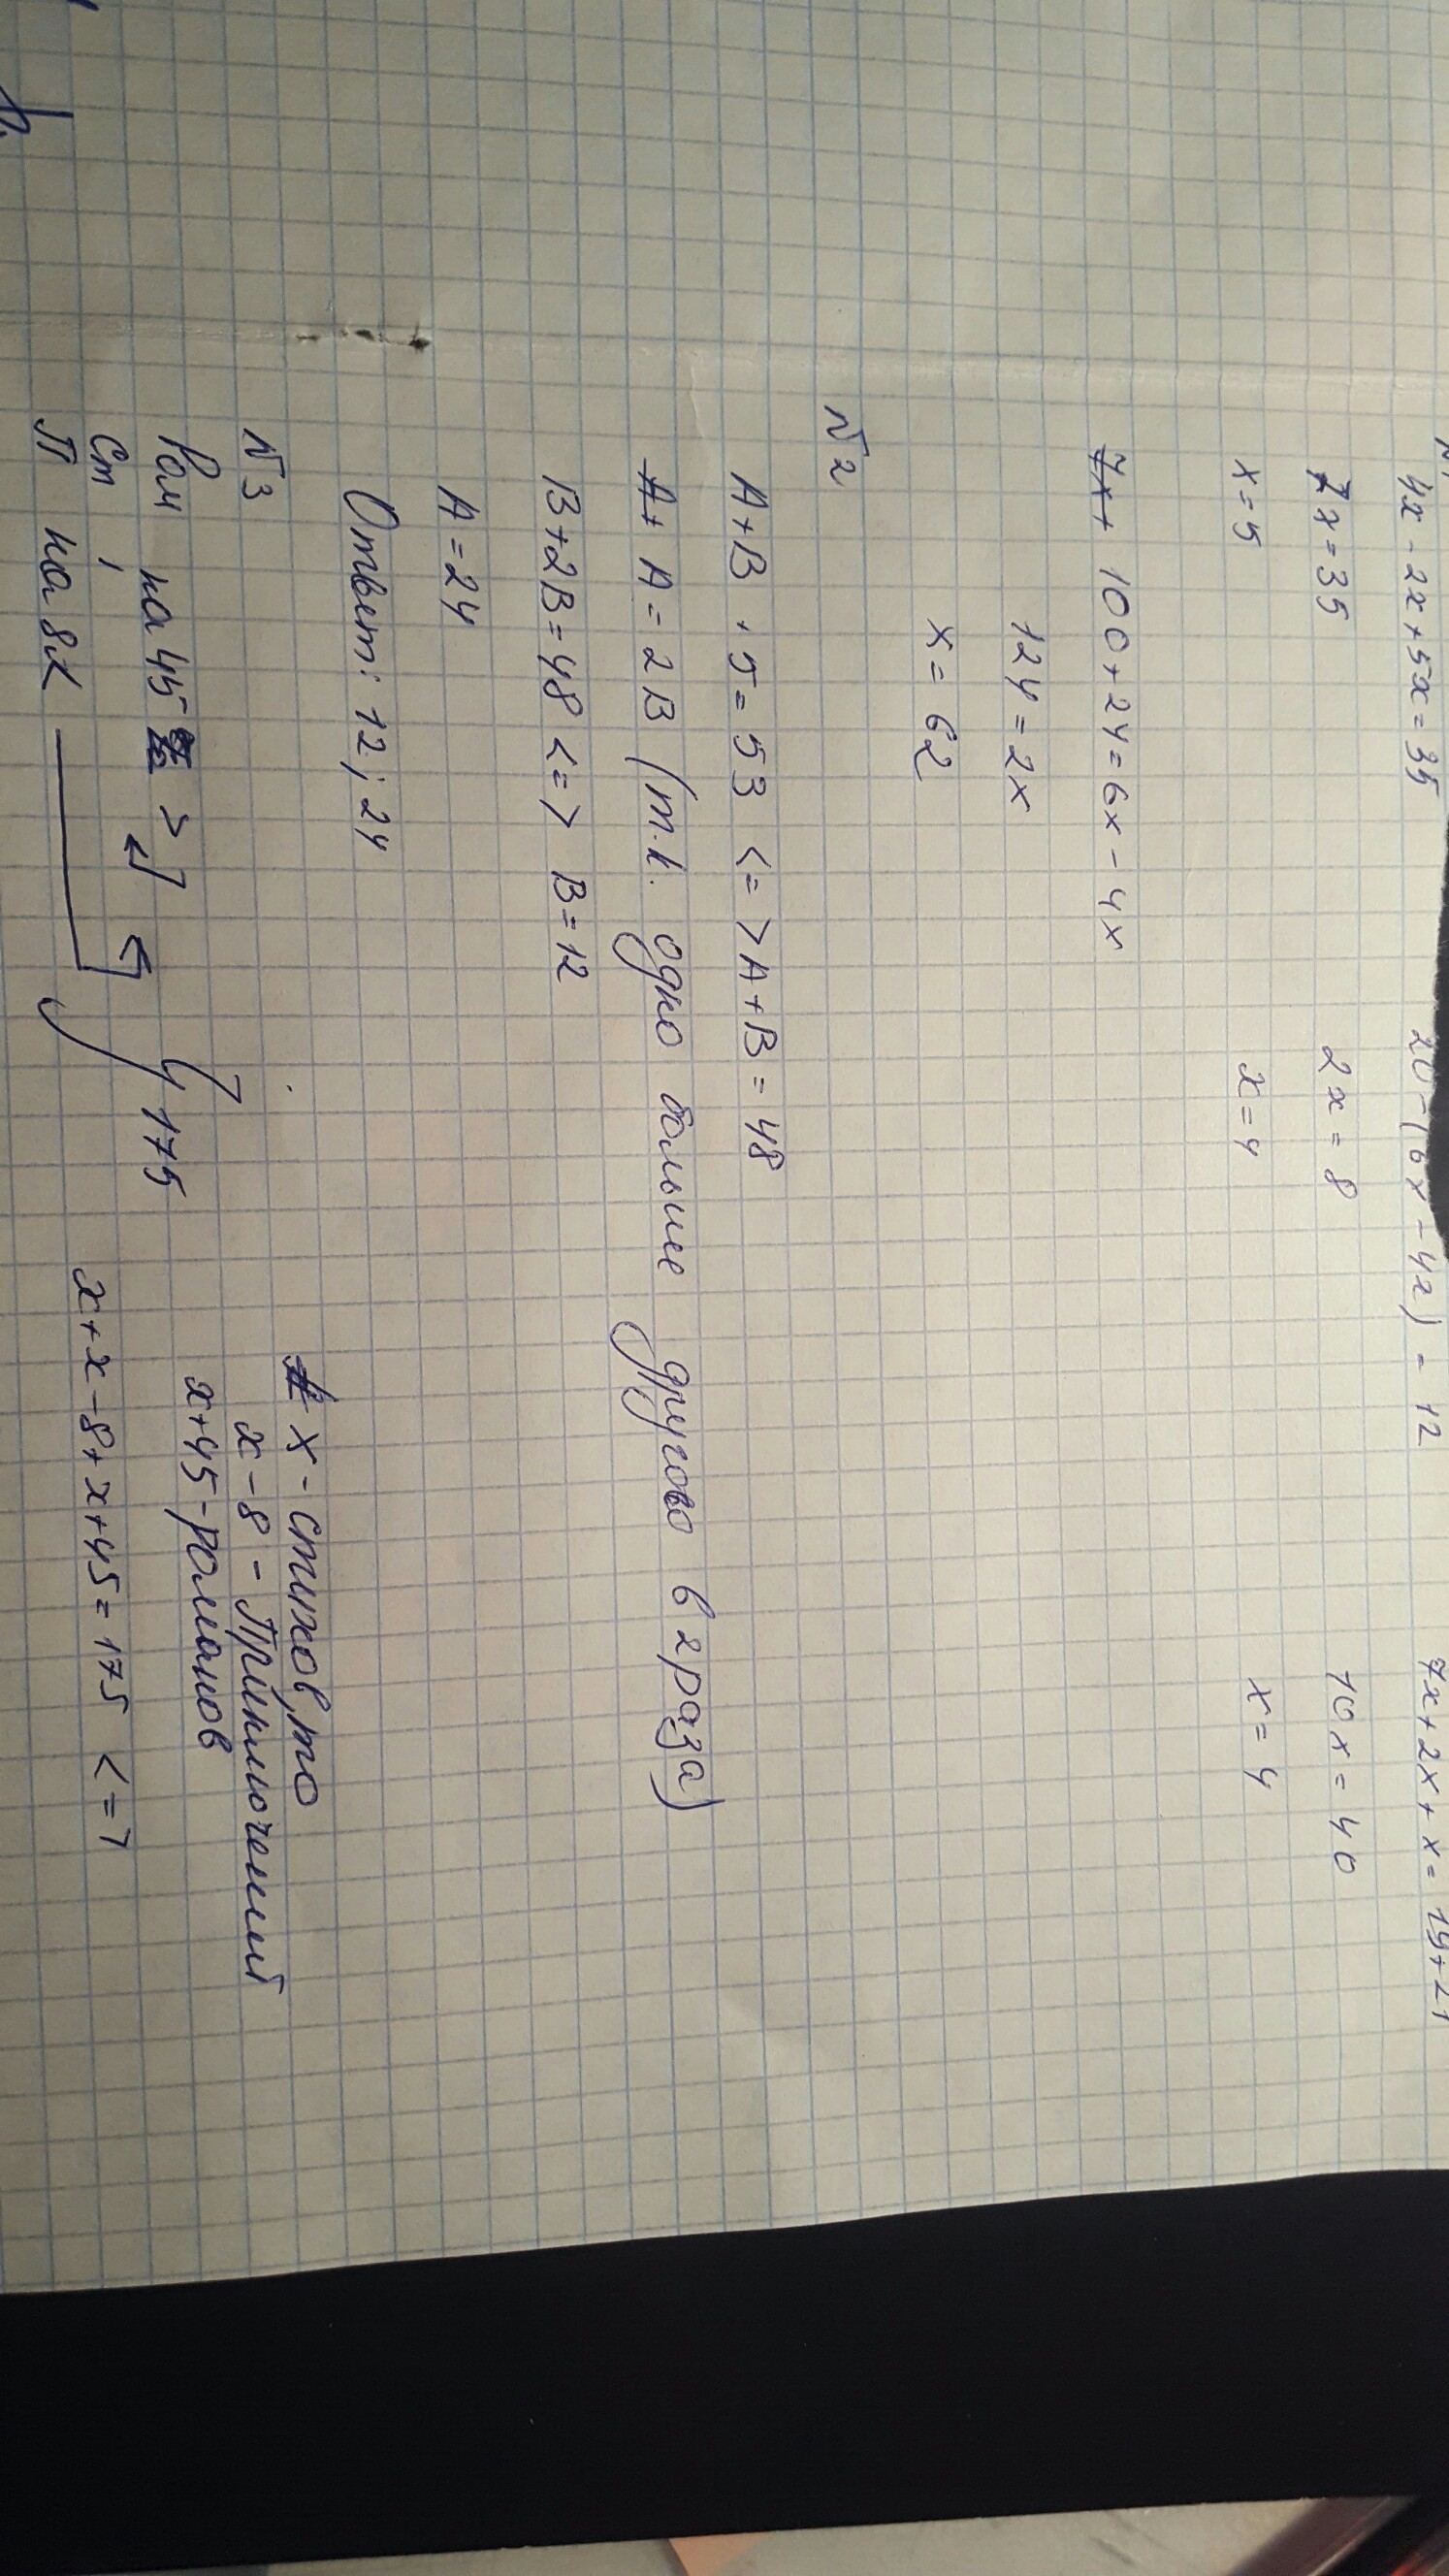 4x - 2x + 5x = 35
20 - (6x - 4x) = 12
7x + 2x + x = 19 + 21
7x = 35
2x = 8
10x = 40
x = 5
x = 4
x = 4
100 + 24 = 6x - 4x
124 = 2x
x = 62
№2
A + B + 5 = 53 <=> A + B = 48
A = 2B (т.к. одно больше другово в 2 раза)
B + 2B = 48 <=> B = 12
A = 24
Ответ: 12; 24
№3
Ром на 45 >
Ст,
П на 8 <
175
x - стихов, то
x - 8 - Приключений
x + 45 - романов
x + x - 8 + x + 45 = 175 <=>